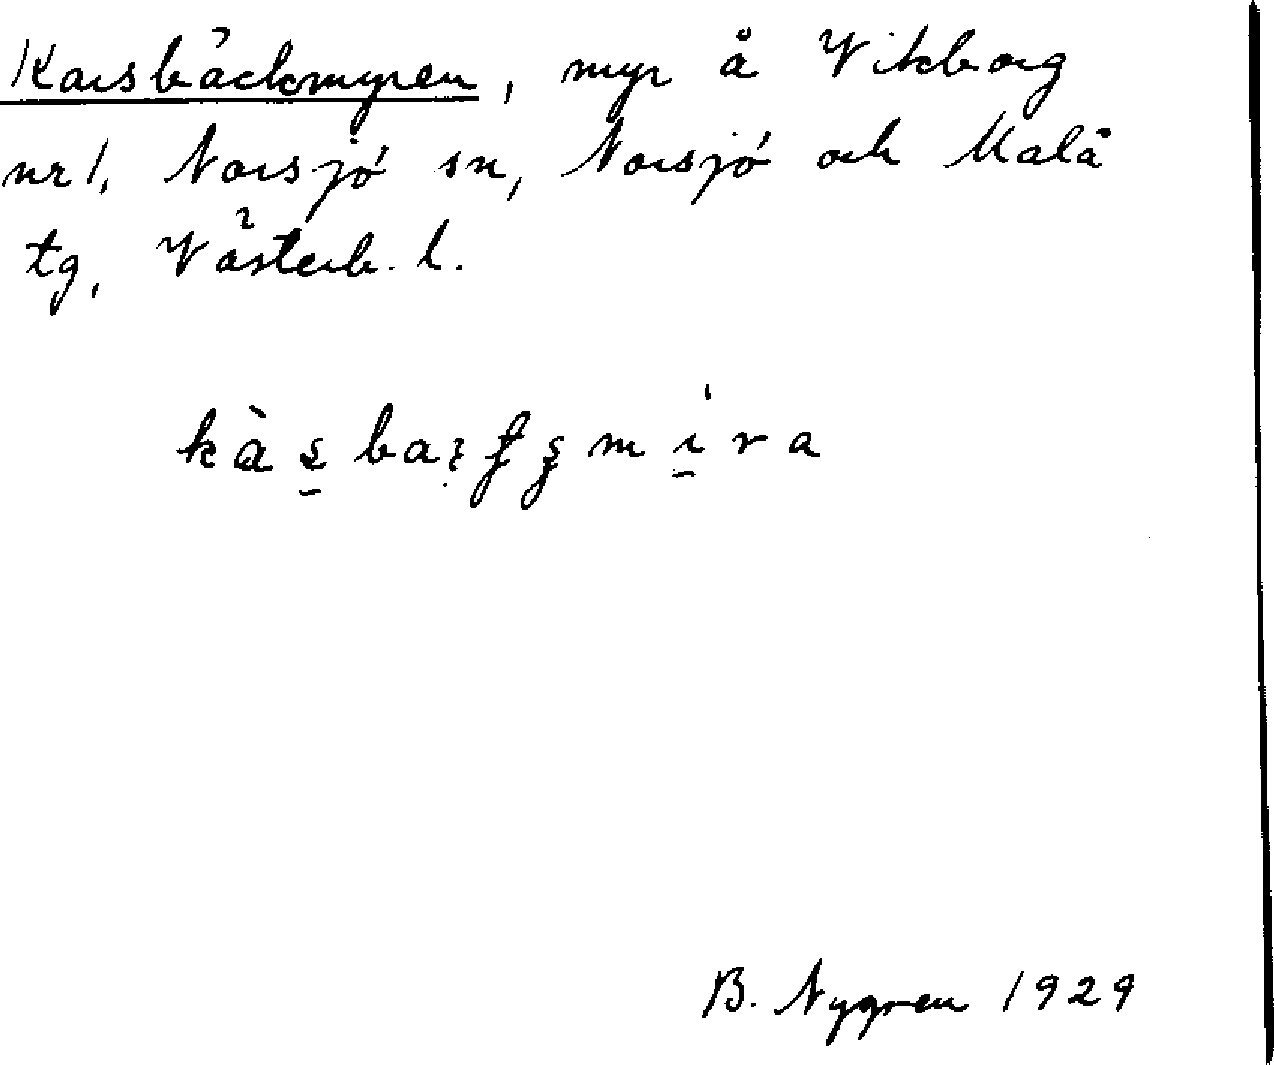 Karsbäckmyren, myr å Vikborg
nr 1, Norsjö sn, Norsjö och Malå
tg, Västerb. l.
B. Nygren 1929